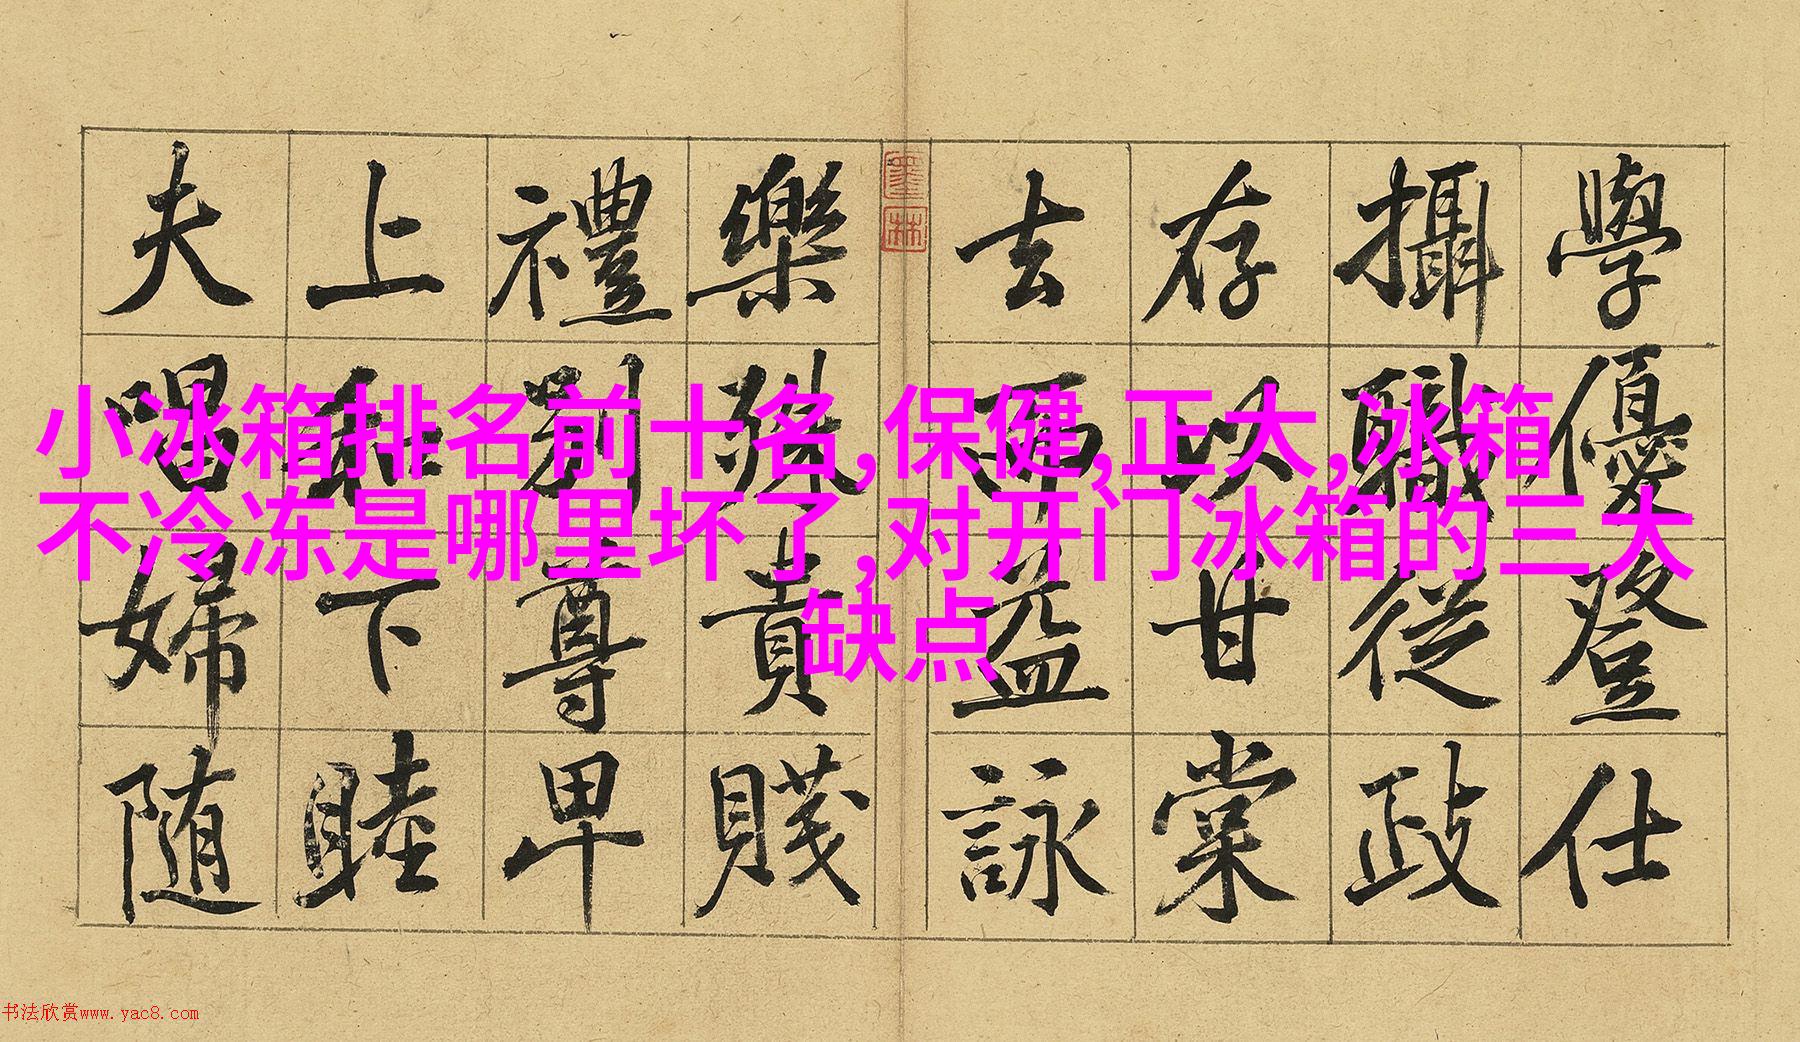 小冰箱排名前十名,保健,正大,冰箱
不冷冻是哪里坏了,对开门冰箱的三大
缺点
學優登仕
攝職從政
存以甘棠
去而益詠
墨林
樂殊貴賤
禮別尊卑
上和下睦
夫唱婦随
书法欣赏www.yac8.com